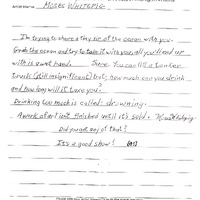 Artist Name: MOSES WHITEPIG
I'm trying to share a tiny bit of the ocean with you.
Grab the ocean and try to take it with you, all you'll end up
with is a wet hand. Sure. You can fill a tanker
truck (still insignificant) but, how much can you drink
and how long will it save you?
Drinking too much is called drowning.
A work of art isn't finished until it's sold.
Did you any of that?
It's a good show!